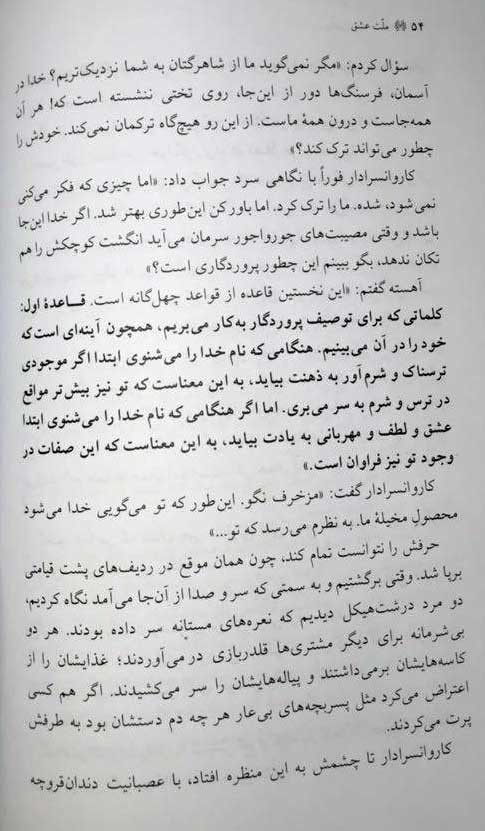 ۵۴ ملّت عشق
سؤال کردم: «مگر نمی‌گوید ما از شاهرگتان به شما نزدیک‌تریم؟ خدا در
آسمان، فرسنگ‌ها دور از این‌جا، روی تختی ننشسته است که! هر آن
همه‌جاست و درون همهٔ ماست. از این رو هیچ‌گاه ترکمان نمی‌کند. خودش را
چطور می‌تواند ترک کند؟»
کاروانسرادار فوراً با نگاهی سرد جواب داد: «اما چیزی که فکر می‌کنی
نمی‌شود، شده. ما را ترک کرد. اما باور کن این‌طوری بهتر شد. اگر خدا این‌جا
باشد و وقتی مصیبت‌های جورواجور سرمان می‌آید انگشت کوچکش را هم
تکان ندهد، بگو ببینم این چطور پروردگاری است؟»
آهسته گفتم: «این نخستین قاعده از قواعد چهل‌گانه است. قـاعدهٔ اول:
کلماتی که برای توصیف پروردگار به‌کار می‌بریم، همچون آینه‌ای است که
خود را در آن می‌بینیم. هنگامی که نام خدا را می‌شنوی ابتدا اگر موجودی
ترسناک و شرم‌آور به ذهنت بیاید، به این معناست که تو نیز بیش‌تر مواقع
در ترس و شرم به سر می‌بری. اما اگر هنگامی که نام خدا را می‌شنوی ابتدا
عشق و لطف و مهربانی به یادت بیاید، به این معناست که این صفات در
وجود تو نیز فراوان است.»
کاروانسرادار گفت: «مزخرف نگو. این‌طور که تو می‌گویی خدا می‌شود
محصولِ مخیلهٔ ما. به نظرم می‌رسد که تو...»
حرفش را نتوانست تمام کند، چون همان موقع در ردیف‌های پشت قیامتی
برپا شد. وقتی برگشتیم و به سمتی که سر و صدا از آن‌جا می‌آمد نگاه کردیم،
دو مرد درشت‌هیکل دیدیم که نعره‌های مستانه سر داده بودند. هر دو
بی‌شرمانه برای دیگر مشتری‌ها قلدربازی درمی‌آوردند؛ غذایشان را از
کاسه‌هایشان برمی‌داشتند و پیاله‌هایشان را سر می‌کشیدند. اگر هم کسی
اعتراض می‌کرد مثل پسربچه‌های بی‌عار هر چه دم دستشان بود به طرفش
پرت می‌کردند.
کاروانسرادار تا چشمش به این منظره افتاد، با عصبانیت دندان‌قروچه